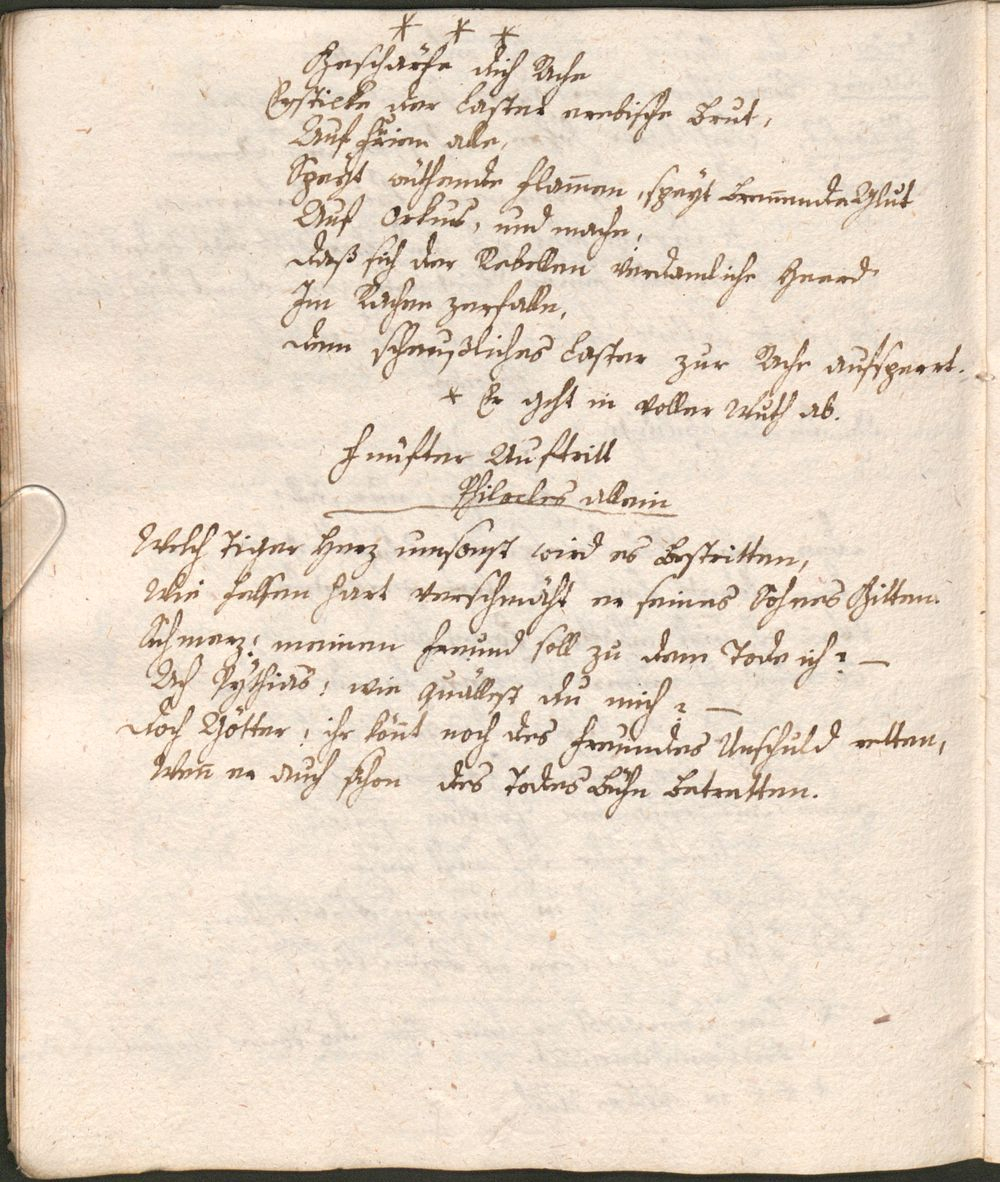 * * *
Geschärfe dich Rache
Ersticke der Laster erebische Brut,
Auf Furien alle,
Speyt wüthende Flam̅en, speyt bren̅ende Glut
Auf Orkus, und mache,
daß sich der Rebellen verdamliche Heerd
Im Rachen zerfalle,
dem scheußliches Laster zur Rache aufsperrt.
* Er geht in voller Wuth ab.
Fünfter Auftritt
Philocles allein
Welch Tiger Herz umsonst wird es bestritten,
Wie felsen hart verschmäht er seines Sohnes Bitten.
Schmerz! meinen Freund soll zu dem Tode ich? —
Ach Pythias! wie quällest du mich? —
doch Götter! ihr kön̅t noch des Freundes Unschuld retten,
Wen̅ er auch schon des Todes Bühn betretten.